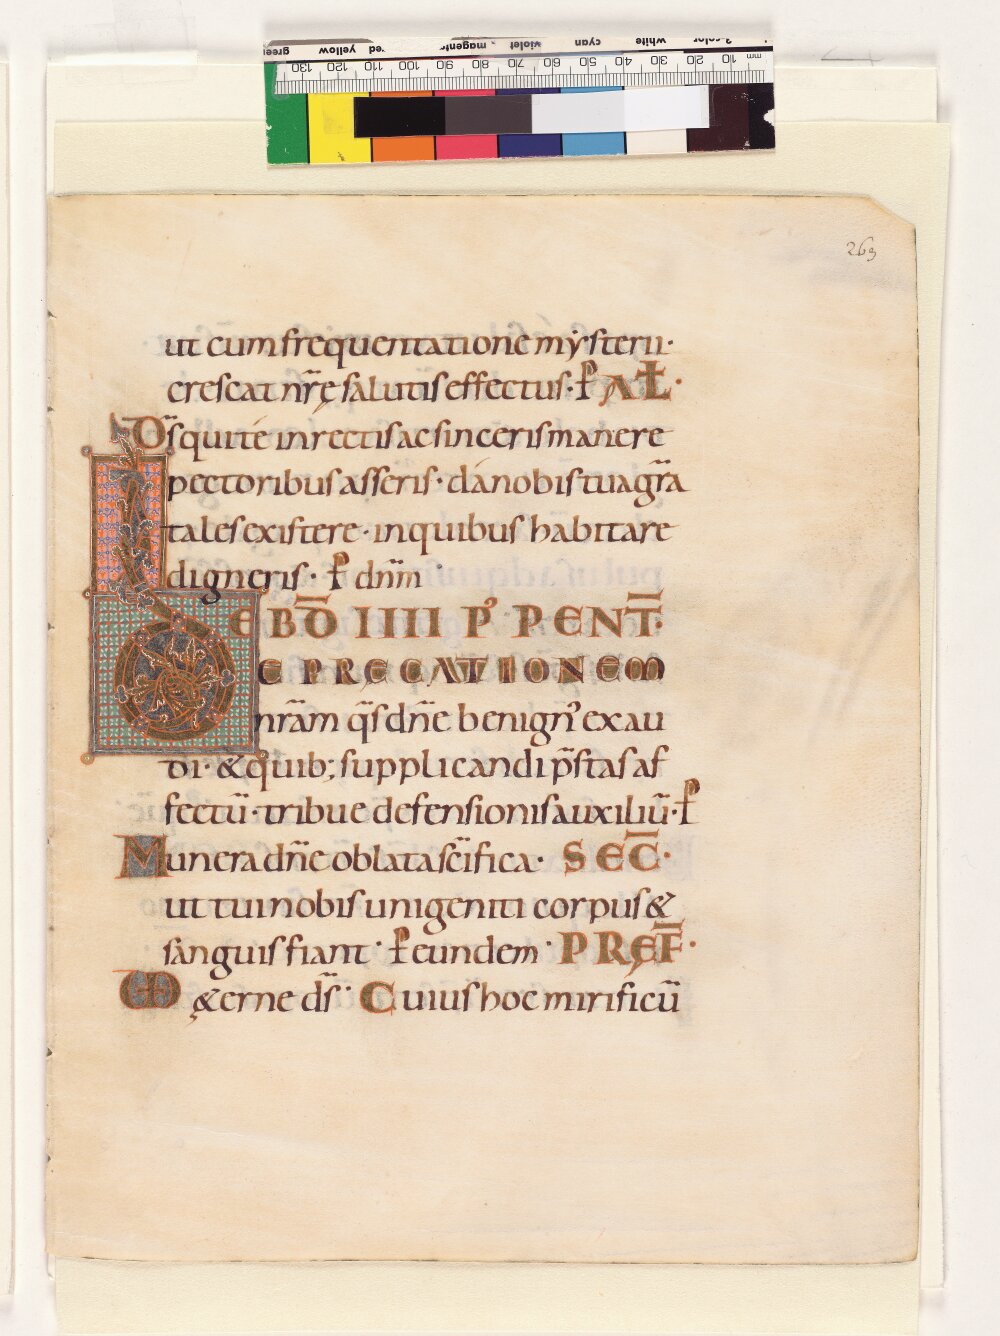 263
ut cum frequentatione mẏsterii·
crescat nr̄ę salutis effectus· P̄ AL̄·
D̄s qui te in rectis ac sinceris manere
pectoribus asseris· dá nobis tua gr̄a
tales existere· in quibus habitare
digneris· P̄ dnm̄
EBD̄ IIII P' PENT̄·
DEPRECATIONEM
nrām q̄s dn̄e benign' exau
di· & quib; supplicandi p̄stas af
fectū· tribue defensionis auxiliū· P̄
Munera dn̄e oblata sc̄ifica· SEC̄·
ut tui nobis unigeniti corpus &
sanguis fiant· P̄ eundem· PRĘF̄·
VD ę&erne ds̄· Cuius hoc mirificū